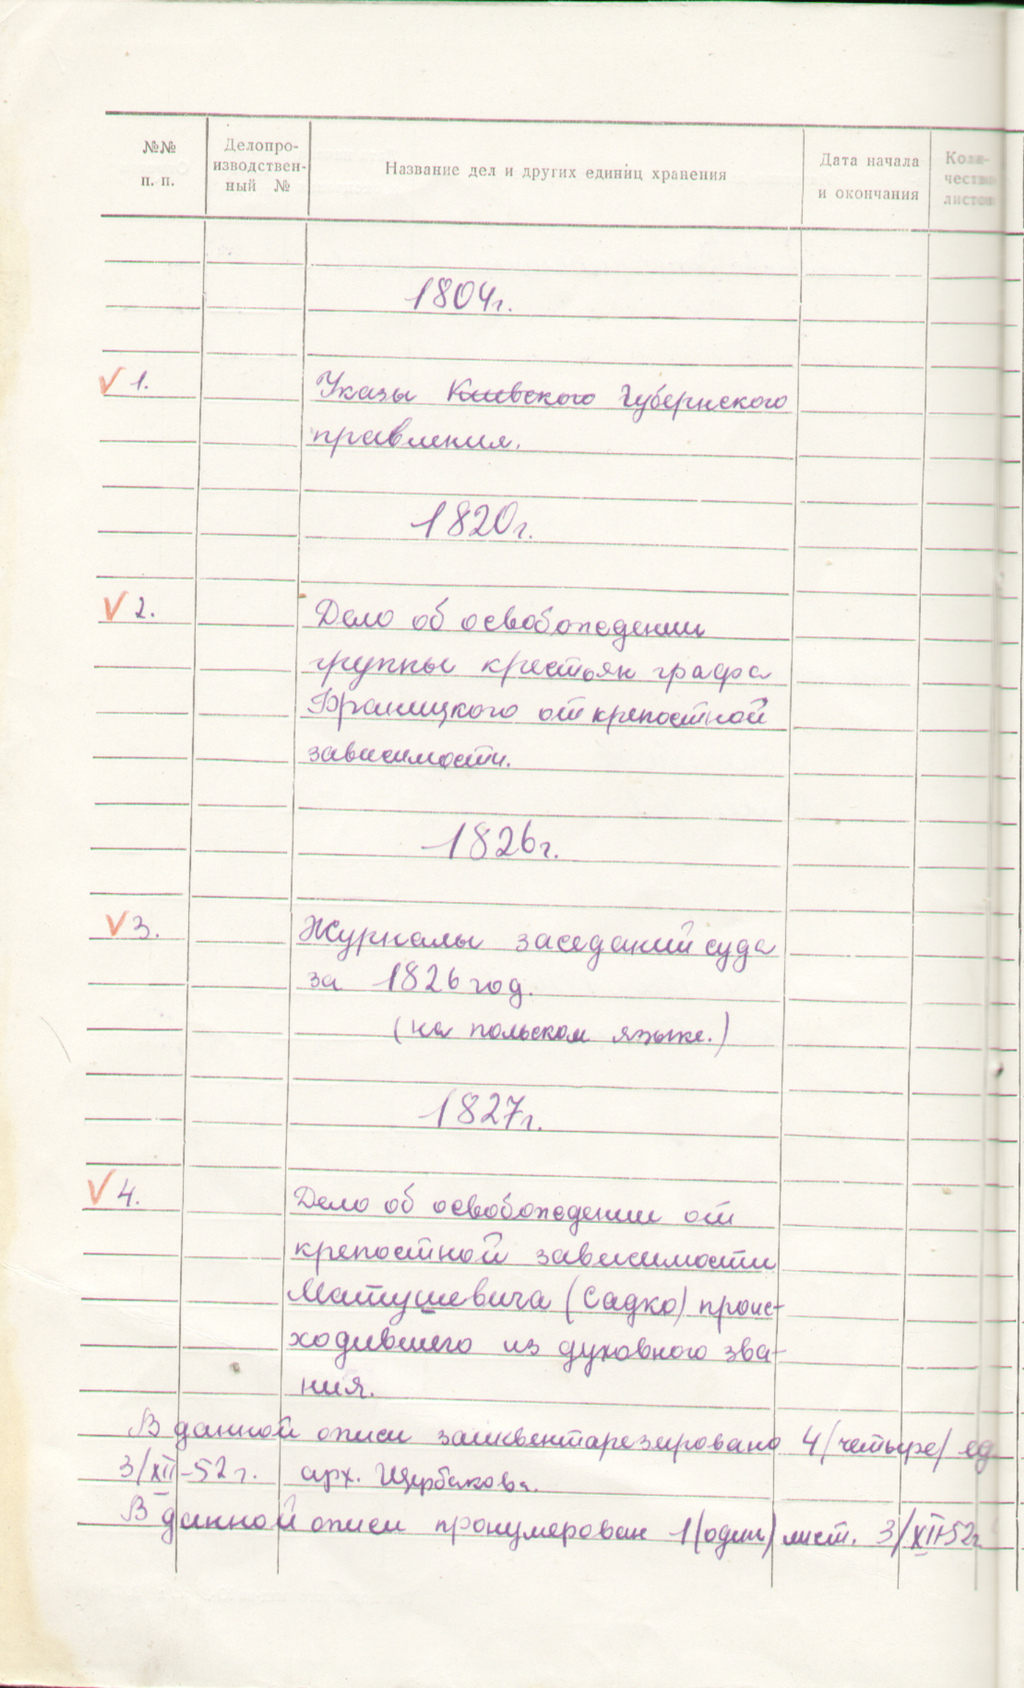 №№
п. п.
Делопро-
изводствен-
ный №
Название дел и других единиц хранения
Дата начала
и окончания
Коли-
чество
листов
1804г.
1. Указы Киевского Губернского
правления.
1820г.
2. Дело об освобождении
группы крестьян графа
Браницкого от крепостной
зависимости.
1826г.
3. Журналы заседаний суда
за 1826 год.
(на польском языке.)
1827г.
4. Дело об освобождении от
крепостной зависимости
Матушевича (Садко) проис-
ходившего из духовного зва-
ния.
В данной описи заинвентаризировано 4/четыре/ ед
3/XII-52г. арх. Щербакова.
В данной описи пронумерован 1(один) лист. 3/XII-52г